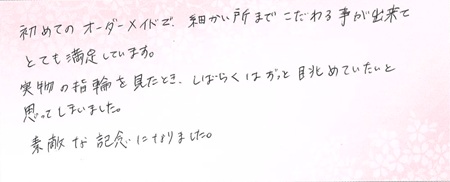 初めてのオーダーメイドで、細かい所までこだわる事が出来て
とても満足しています。
実物の指輪を見たとき、しばらくはずっと眺めていたいと
思ってしまいました。
素敵な記念になりました。